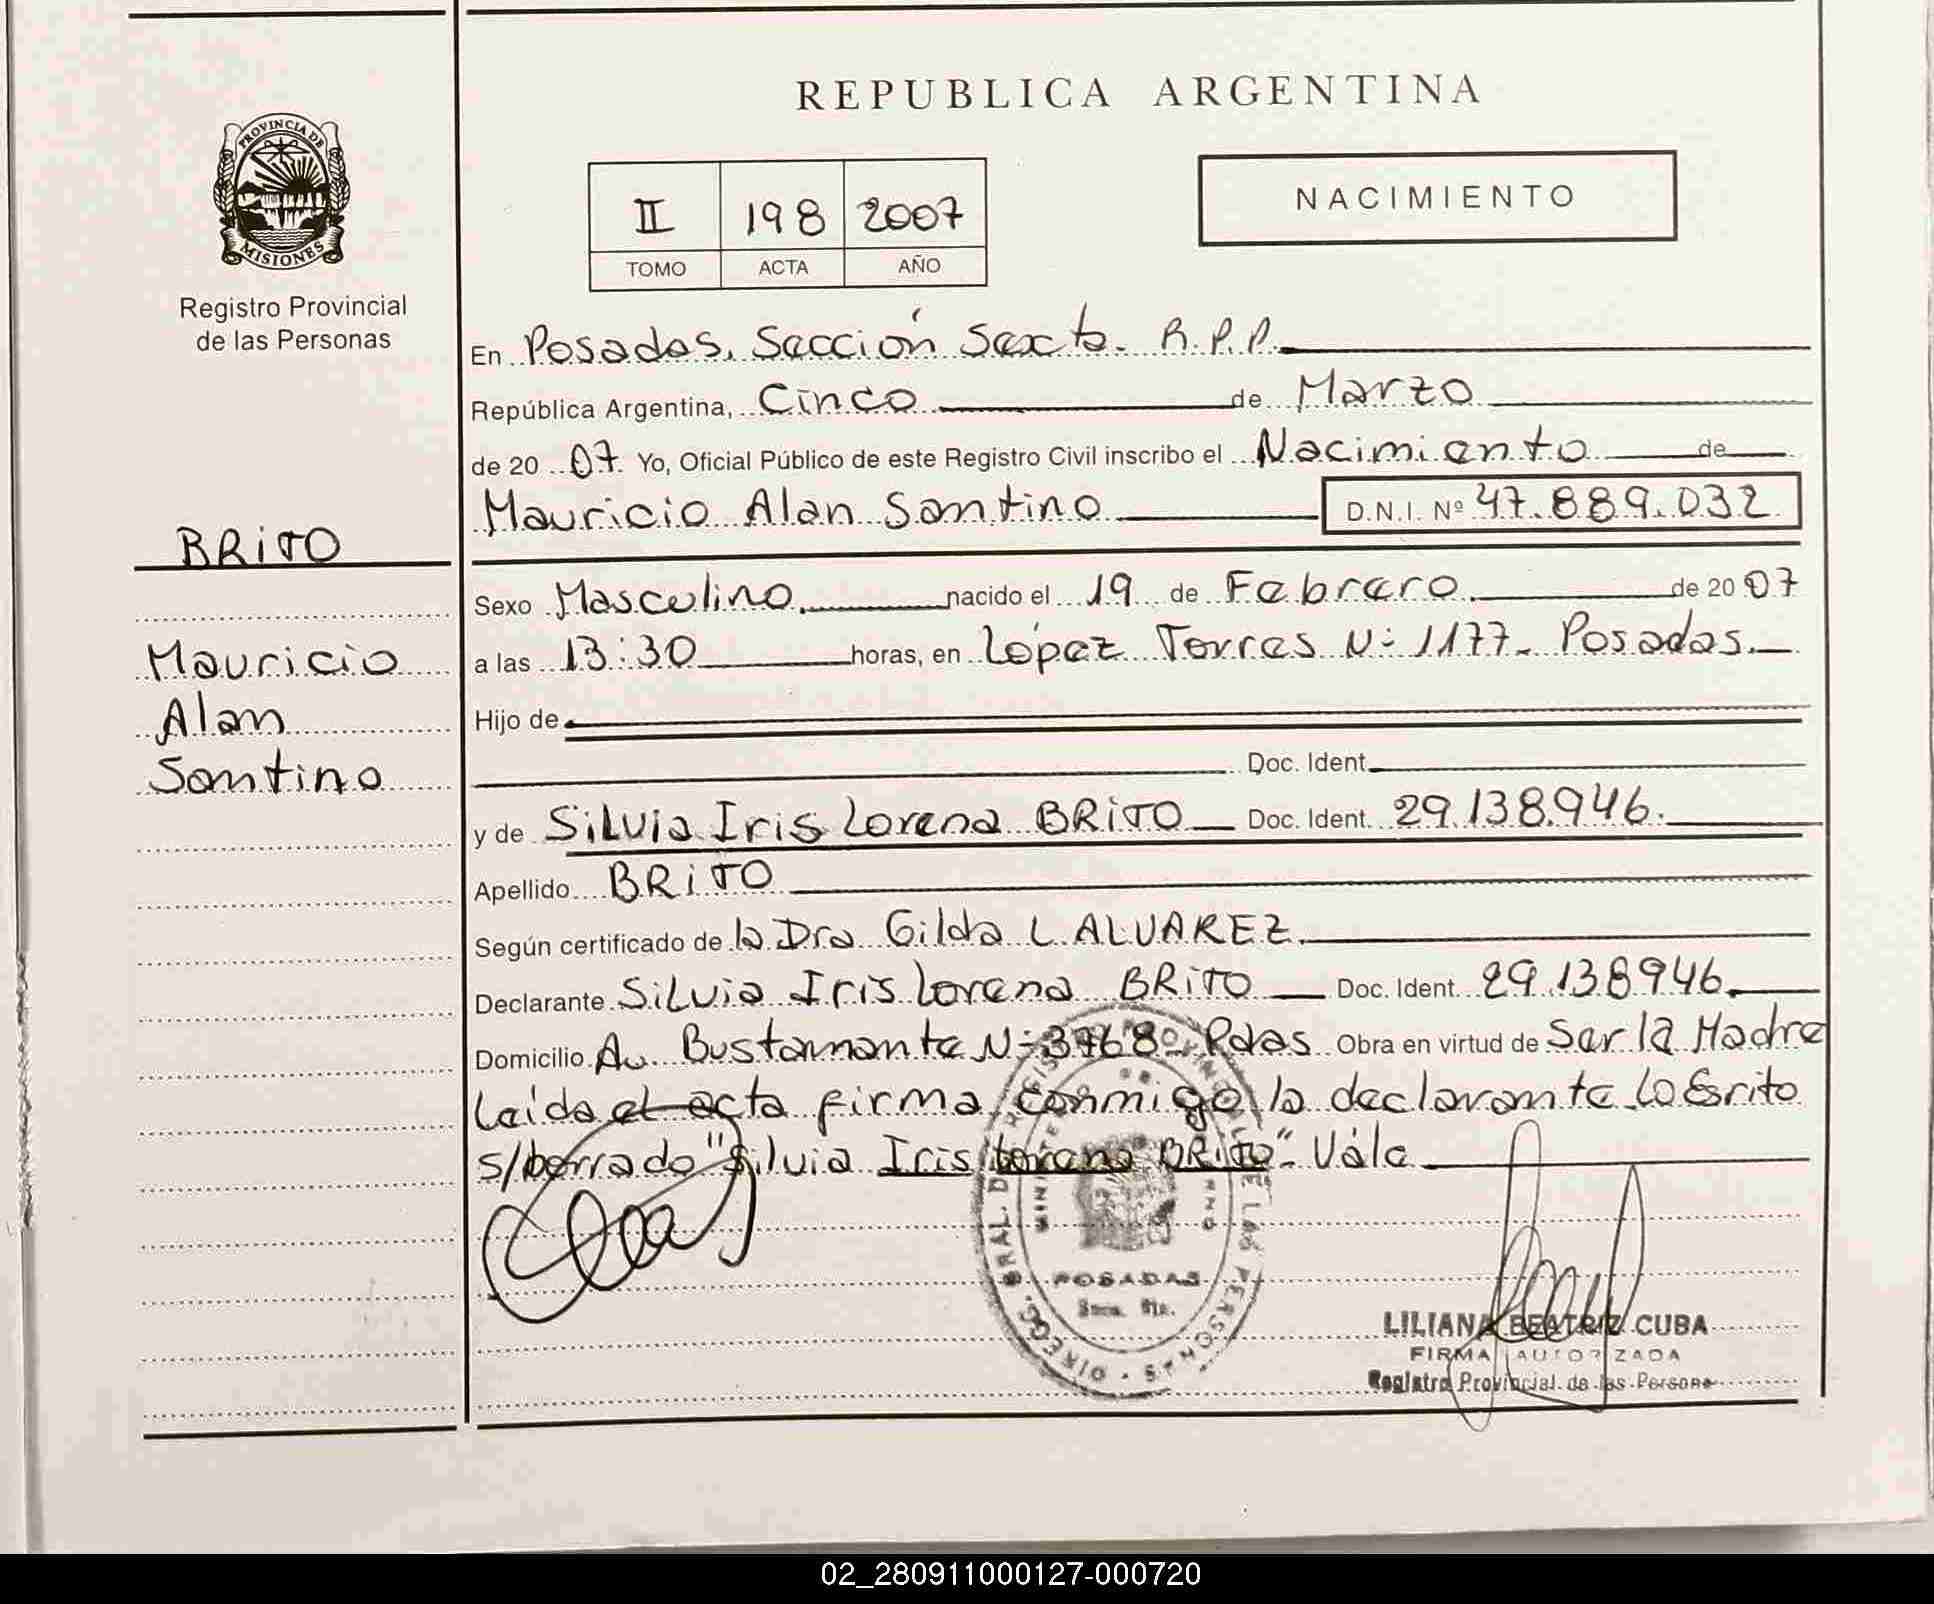 REPUBLICA ARGENTINA
PROVINCIA DE
MISIONES
Registro Provincial
de las Personas
II 198 2007
TOMO ACTA AÑO
NACIMIENTO
En Posadas, Sección Sexta. R.P.P.
República Argentina, Cinco de Marzo
de 20 07 Yo, Oficial Público de este Registro Civil inscribo el Nacimiento de
Mauricio Alan Santino D.N.I. Nº 47.889.032
BRITO
Mauricio
Alan
Santino
Sexo Masculino. nacido el 19 de Febrero. de 20 07
a las 13:30 horas, en López Torres Nº 1177. Posadas.
Hijo de
Doc. Ident.
y de Silvia Iris Lorena BRITO Doc. Ident. 29.138.946.
Apellido BRITO
Según certificado de la Dra Gilda L. ALVAREZ.
Declarante Silvia Iris Lorena BRITO Doc. Ident. 29.138946.
Domicilio Av. Bustamante Nº 3768 Pdas Obra en virtud de Ser la Madre
Leída el acta firma conmigo la declarante. Lo Esrito
s/borrado "Silvia Iris Lorena BRITO". Vále
DIRECC. GRAL. DEL REGISTRO PROVINCIAL DE LAS PERSONAS
POSADAS
Secc. 6ta.
LILIANA BEATRIZ CUBA
FIRMA AUTORIZADA
Registro Provincial de las Persona
02_280911000127-000720